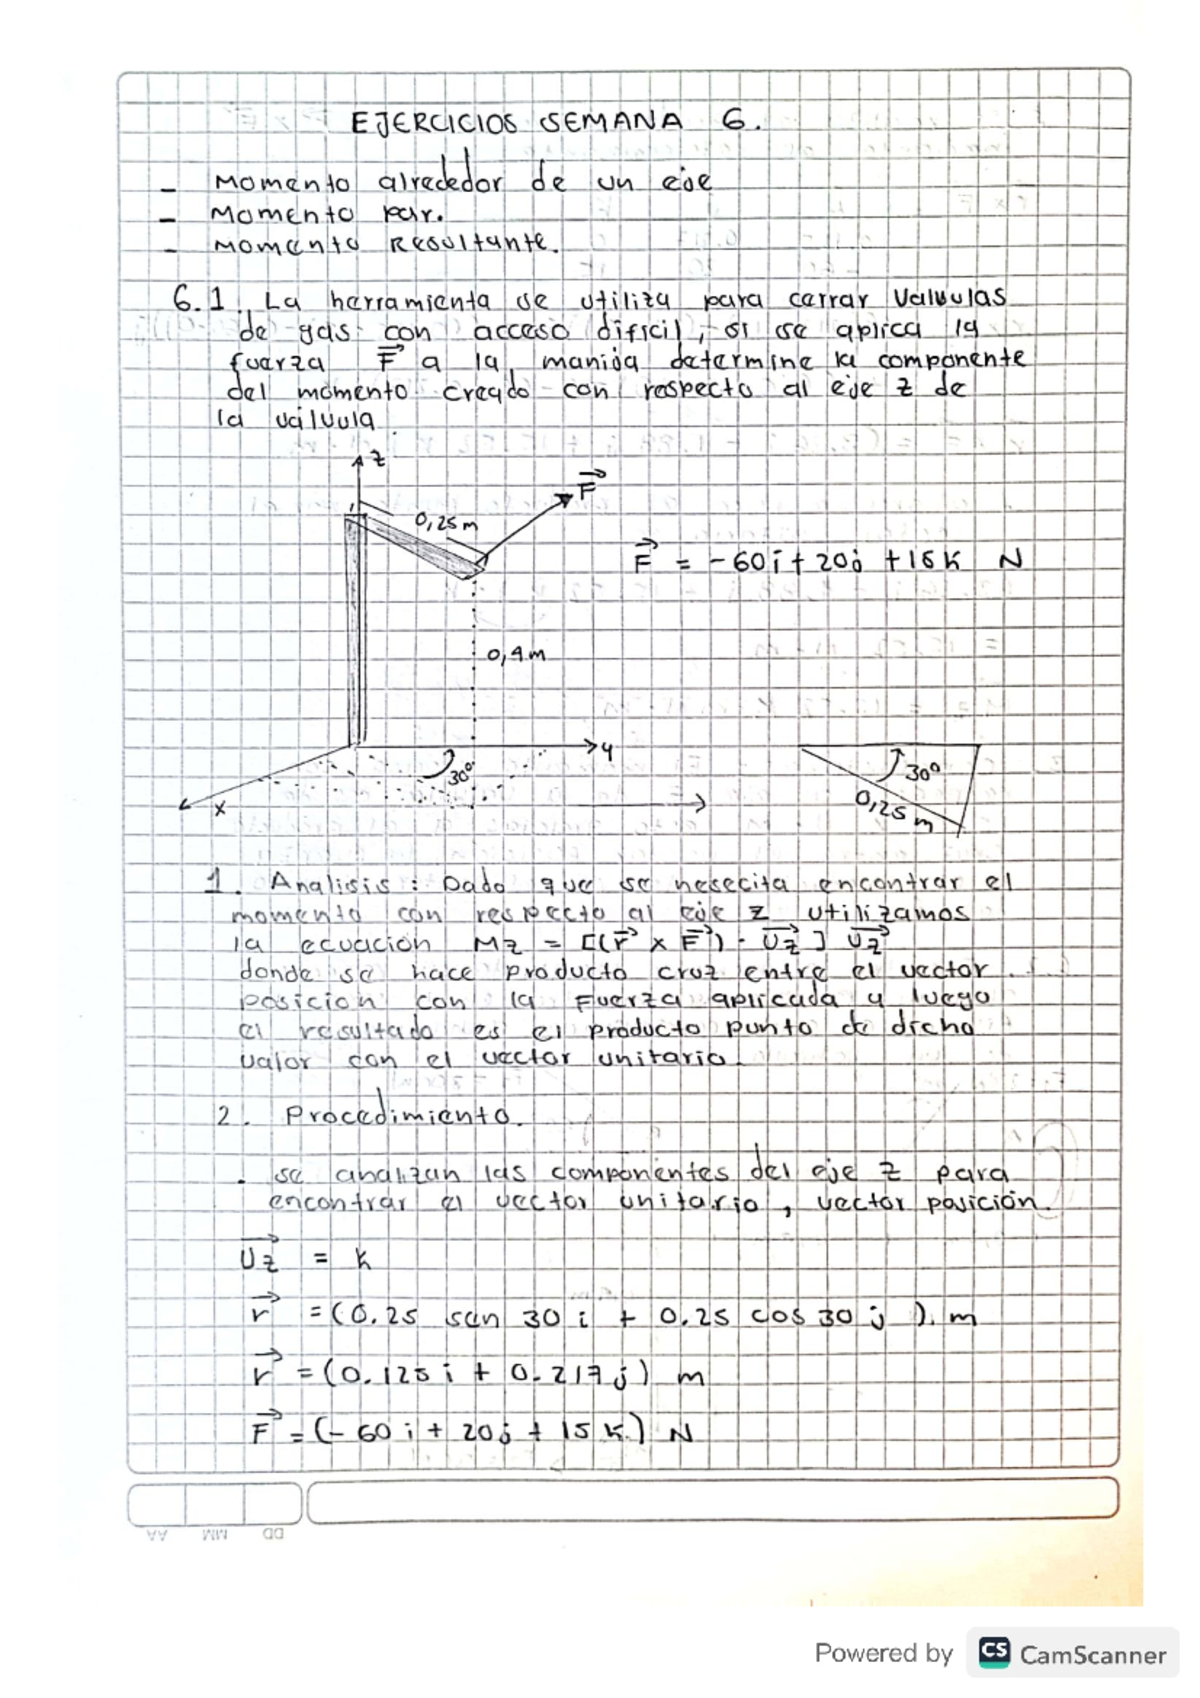 EJERCICIOS SEMANA 6.
- Momento alrededor de un eje
- Momento par.
- Momento Resultante.
6.1. La herramienta se utiliza para cerrar valvulas
de gas con acceso dificil, si se aplica la
fuerza F a la manija determine la componente
del momento creado con respecto al eje z de
la válvula
z
F
0,25 m
F = -60i + 20j + 15k N
0,4 m
y
30°
30°
x
0,25 m
1. Analisis: Dado que se nesecita encontrar el
momento con respecto al eje z utilizamos
la ecuación Mz = [(r x F) · Uz] Uz
donde se hace producto cruz entre el vector
posicion con la Fuerza aplicada y luego
el resultado es el producto punto de dicho
valor con el vector unitario.
2. Procedimiento.
. se analizan las componentes del eje z para
encontrar el vector unitario, vector posición.
Uz = k
r = (0.25 sen 30 i + 0.25 cos 30 j). m
r = (0.125 i + 0.217 j) m
F = (-60 i + 20j + 15 k) N
AA MM DD
Powered by CS CamScanner